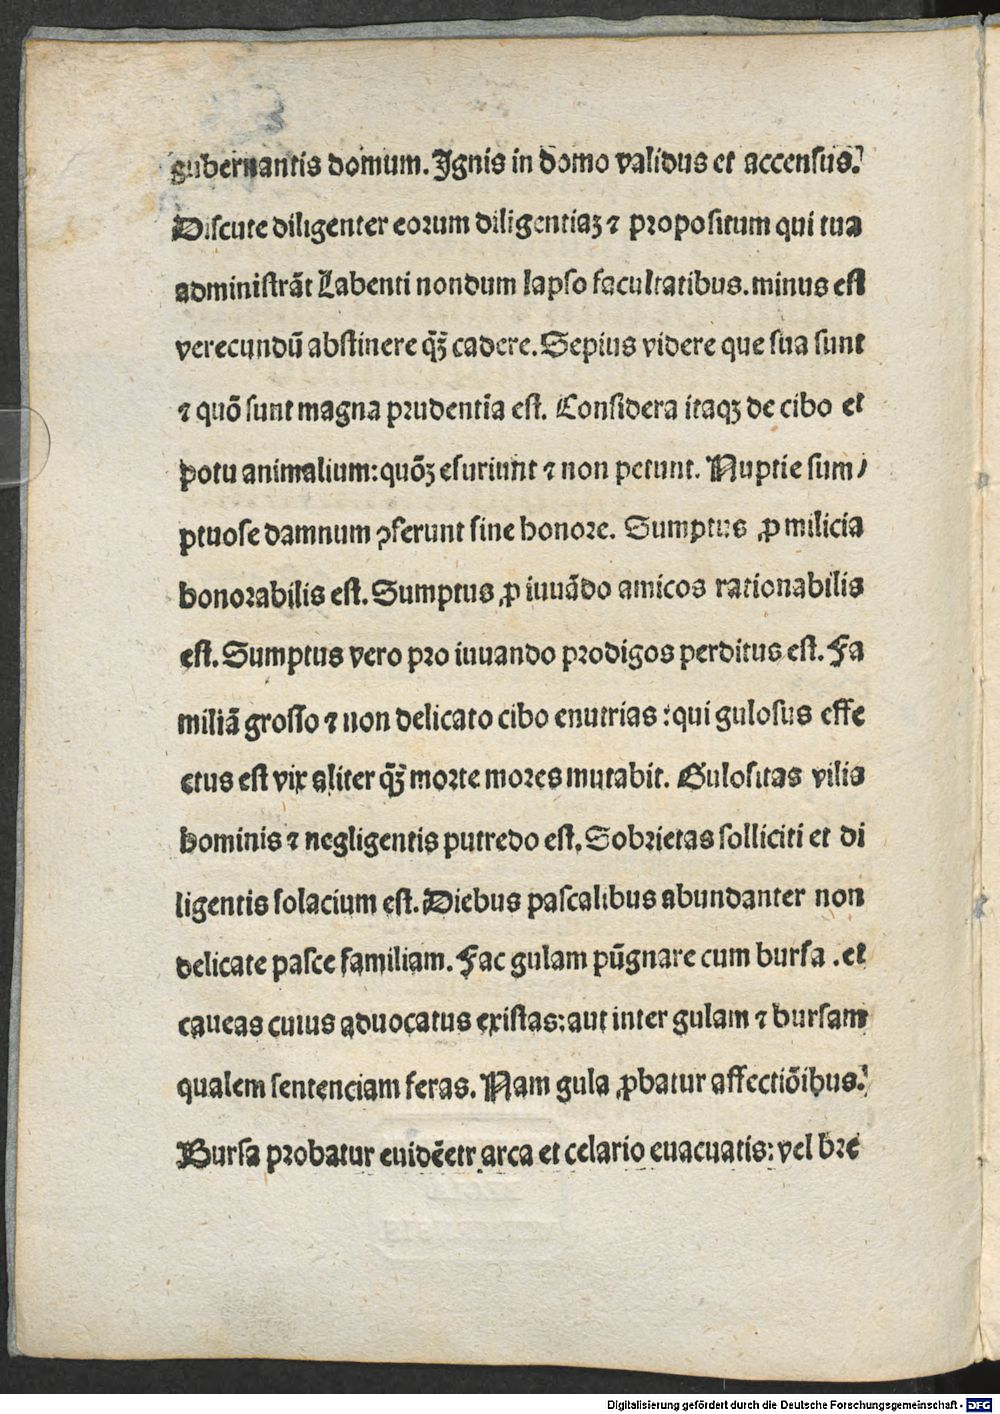 gubernantis domum. Ignis in domo validus et accensus.
Discute diligenter eorum diligentiaꝫ ⁊ propositum qui tua
administrāt Labenti nondum lapso facultatibus. minus est
verecundū abstinere q̃ꝫ cadere. Sepius videre que sua sunt
⁊ quō sunt magna prudentia est. Considera itaqꝫ de cibo et
potu animalium: quōꝫ esuriunt ⁊ non petunt. Nuptie sum/
ptuose damnum ꝯferunt sine honore. Sumptus ꝓ milicia
honorabilis est. Sumptus ꝓ iuuādo amicos rationabilis
est. Sumptus vero pro iuuando prodigos perditus est. Fa
miliā grosso ⁊ non delicato cibo enutrias: qui gulosus effe
ctus est vix aliter q̃ꝫ morte mores mutabit. Gulositas vilis
hominis ⁊ negligentis putredo est. Sobrietas solliciti et di
ligentis solacium est. Diebus pascalibus abundanter non
delicate pasce familiam. Fac gulam pūgnare cum bursa. et
caueas cuius aduocatus existas: aut inter gulam ⁊ bursam
qualem sentenciam feras. Nam gula ꝓbatur affectiōibus.
Bursa probatur euidēetr arca et celario euacuatis: vel bre
Digitalisierung gefördert durch die Deutsche Forschungsgemeinschaft - DFG